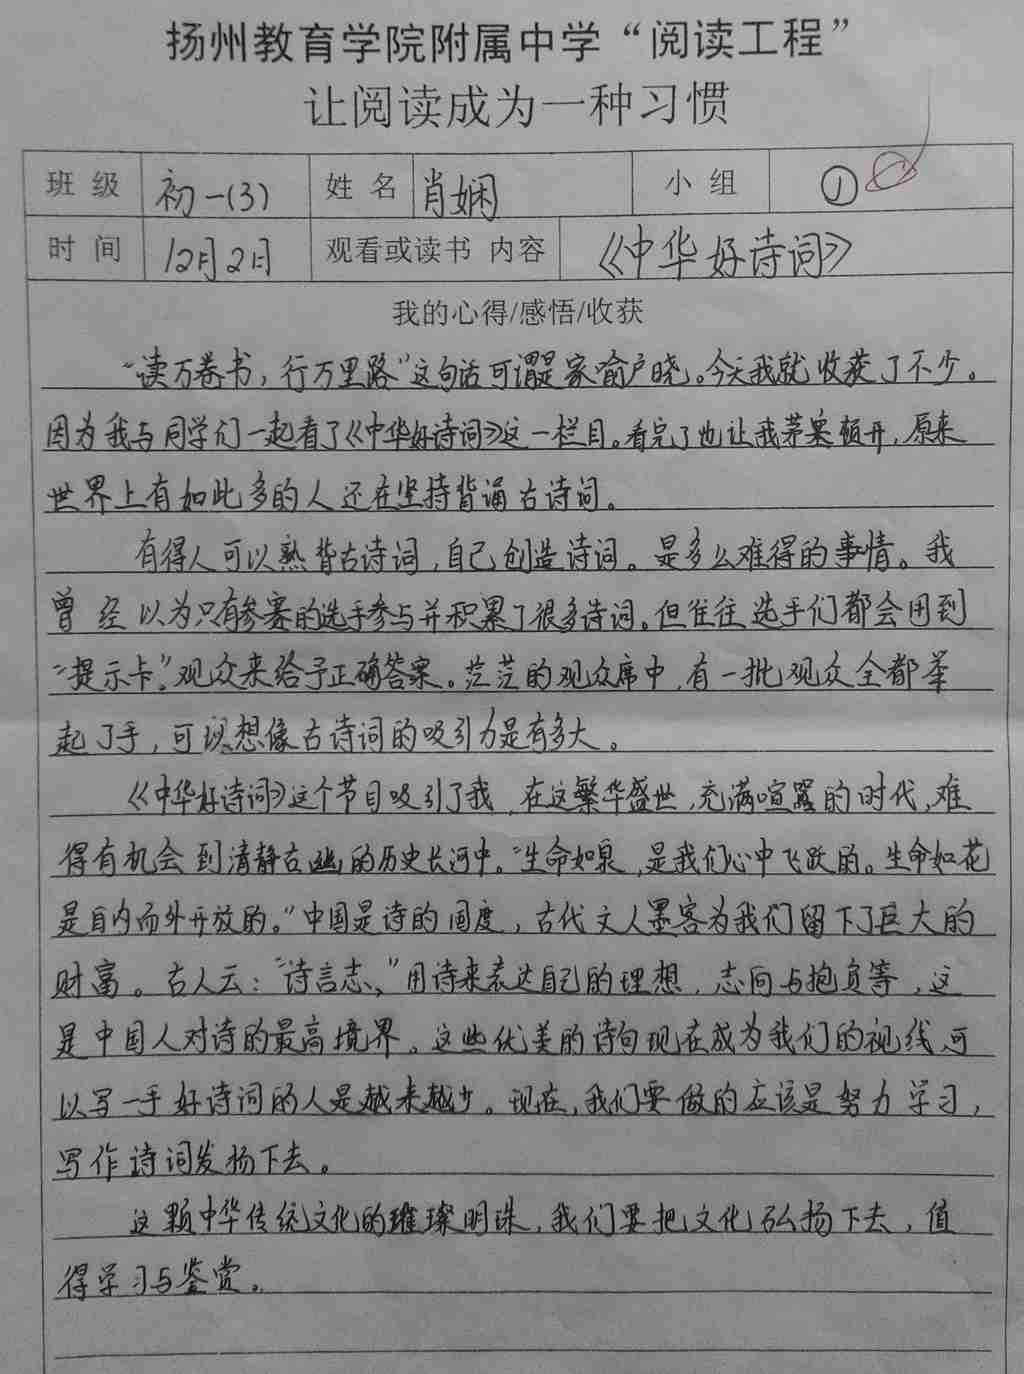 扬州教育学院附属中学“阅读工程”
让阅读成为一种习惯
班 级 初一(3) 姓 名 肖娴 小 组 ①
时 间 12月2日 观看或读书 内容 《中华好诗词》
我的心得/感悟/收获
“读万卷书，行万里路”这句话可谓是家喻户晓。今天我就收获了不少。
因为我与同学们一起看了《中华好诗词》这一栏目。看完了也让我茅塞顿开，原来
世界上有如此多的人还在坚持背诵古诗词。
有得人可以熟背古诗词，自己创造诗词。是多么难得的事情。我
曾经以为只有参赛的选手参与并积累了很多诗词。但往往选手们都会用到
“提示卡”。观众来给予正确答案。茫茫的观众席中，有一批观众全都举
起了手，可以想像古诗词的吸引力是有多大。
《中华好诗词》这个节目吸引了我，在这繁华盛世，充满喧嚣的时代，难
得有机会到清静古幽的历史长河中。“生命如泉，是我们心中飞跃的。生命如花
是自内而外开放的。”中国是诗的国度，古代文人墨客为我们留下了巨大的
财富。古人云：“诗言志，”用诗来表达自己的理想，志向与抱负等，这
是中国人对诗的最高境界。这些优美的诗句现在成为我们的视线，可
以写一手好诗词的人是越来越少。现在，我们要做的应该是努力学习，
写作诗词发扬下去。
这颗中华传统文化的璀璨明珠，我们要把文化弘扬下去，值
得学习与鉴赏。